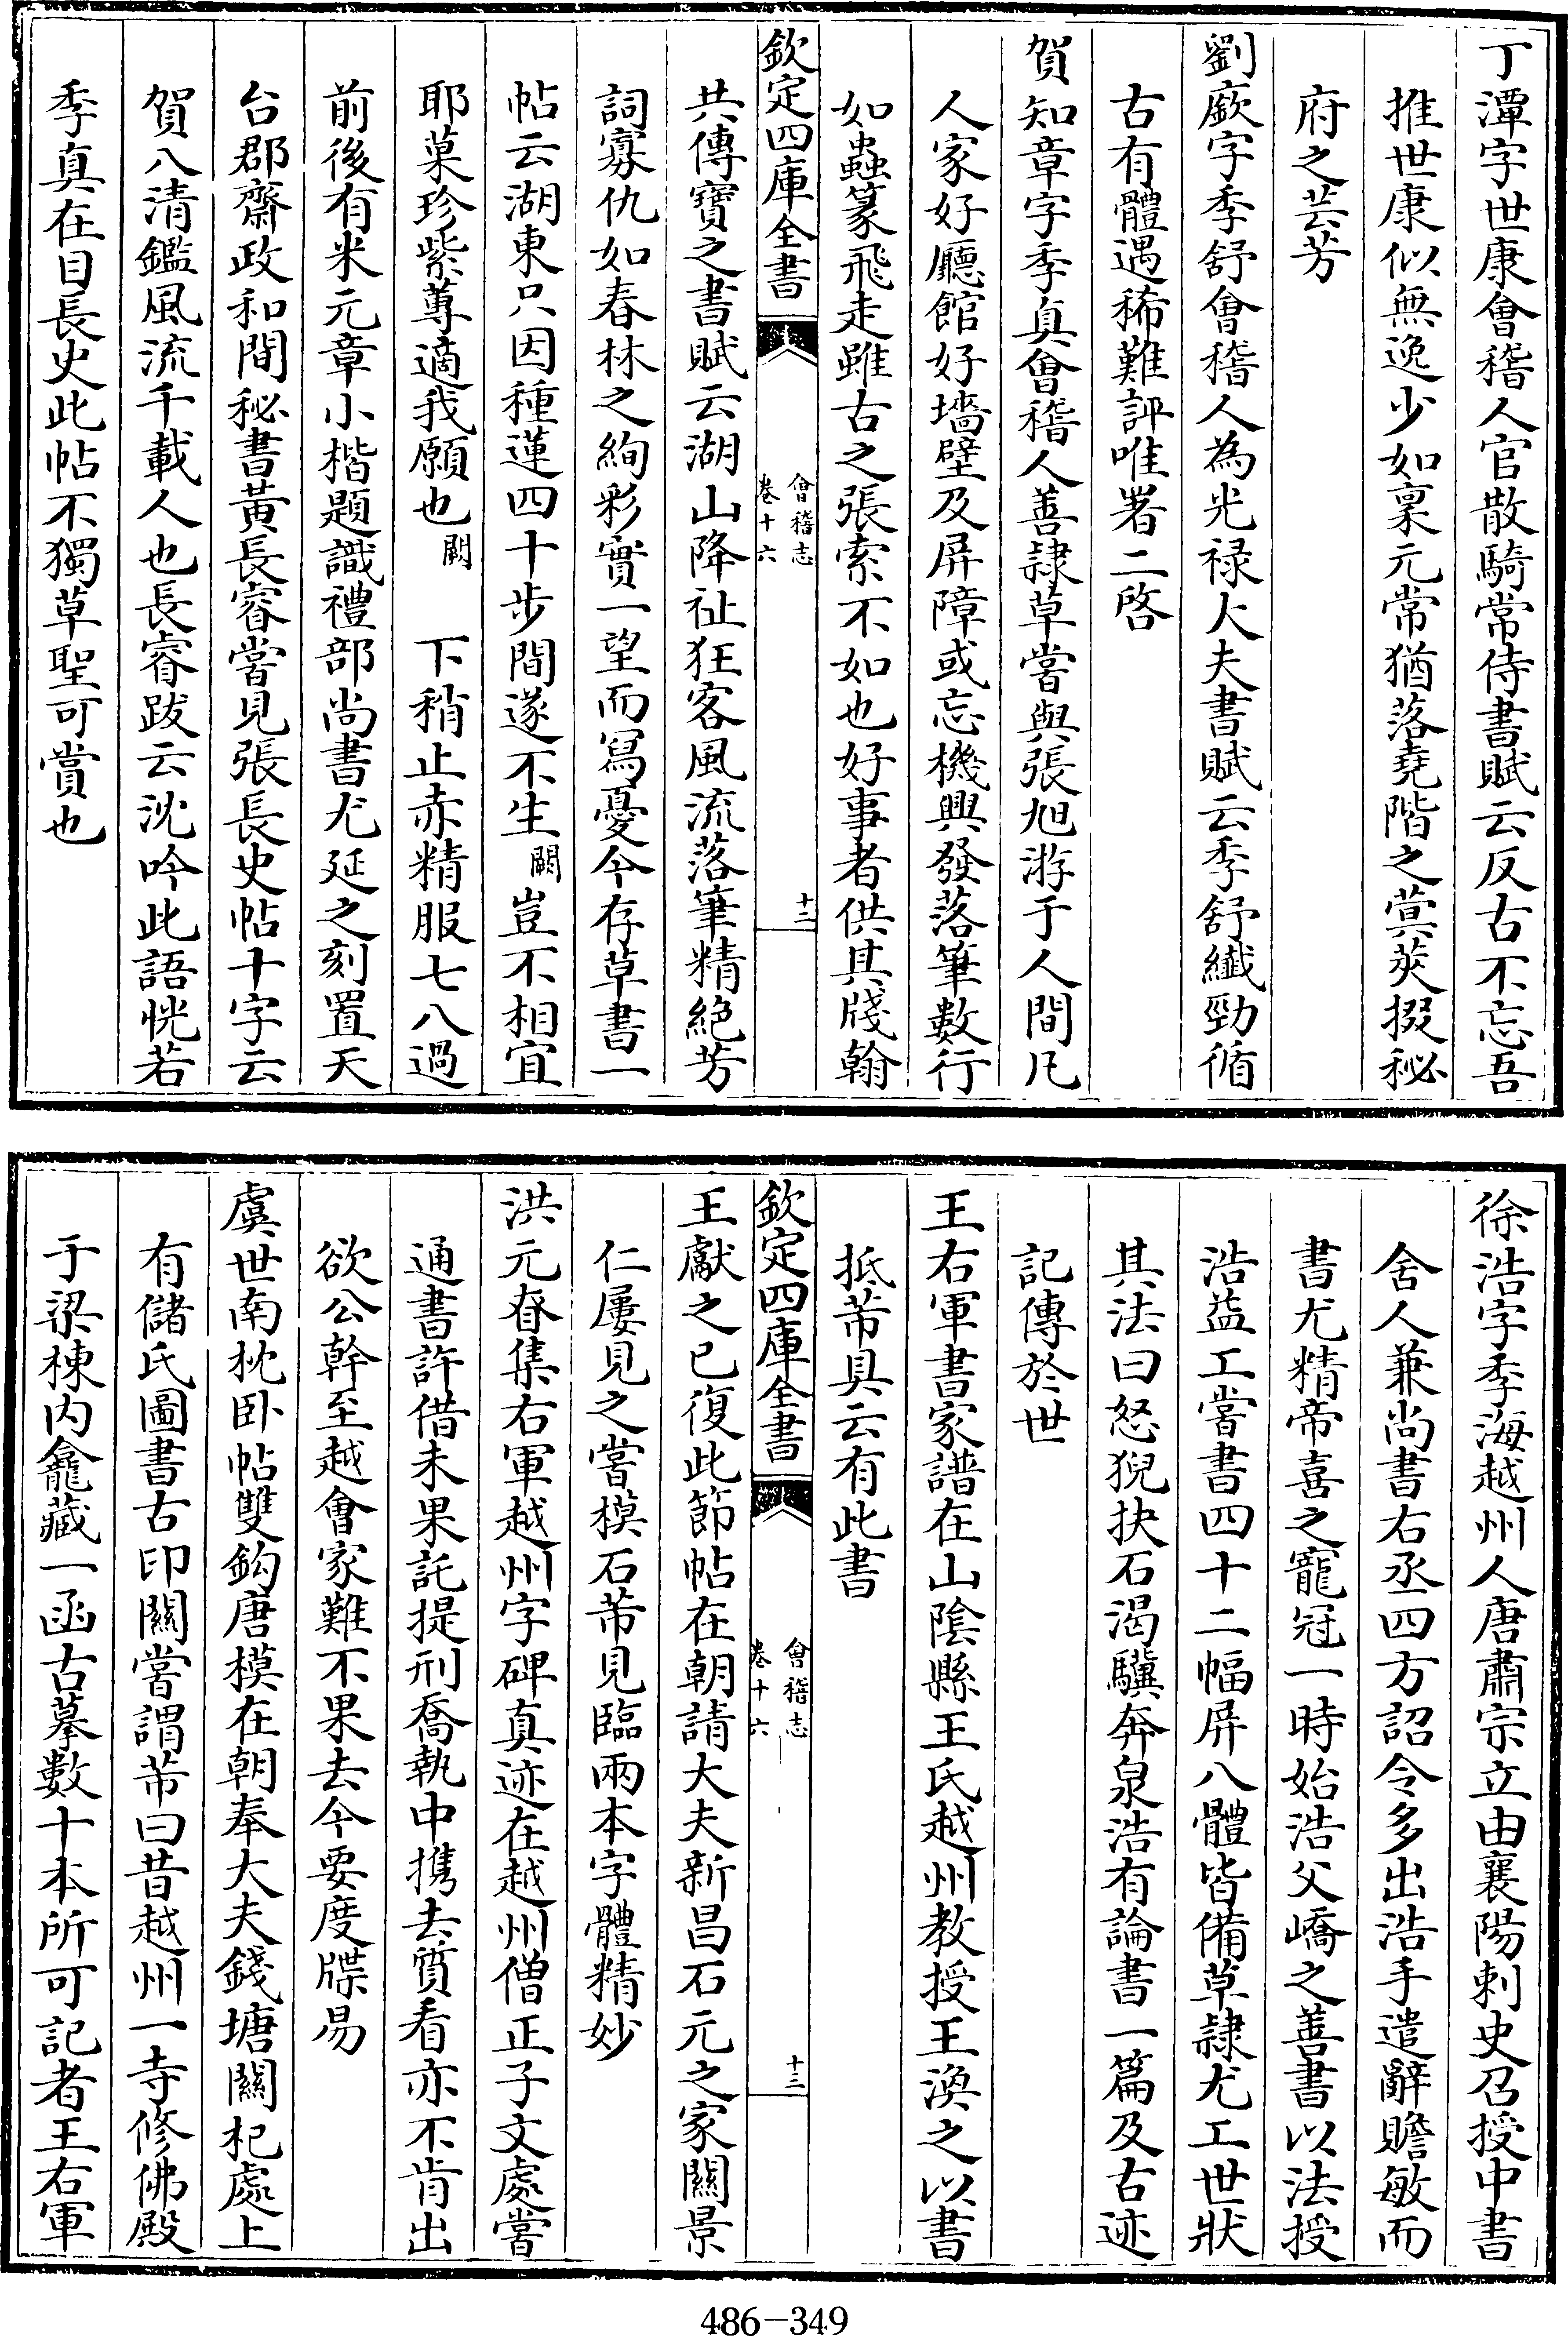 丁潭字世康會稽人官散騎常侍書賦云反古不忘吾
推世康似無逸少如稟元常猶落堯階之蓂莢掇秘
府之芸芳
劉廞字季舒會稽人為光祿大夫書賦云季舒纖勁循
古有體遇稀難評唯署二啓
賀知章字季真會稽人善隷草嘗與張旭游于人間凡
人家好廳館好墻壁及屏障或忘機興發落筆數行
如蟲篆飛走雖古之張索不如也好事者供其牋翰
欽定四庫全書
會稽志
卷十六
十二
共傳寶之書賦云湖山降祉狂客風流落筆精絕芳
詞寡仇如春林之絢彩實一望而寫憂今存草書一
帖云湖東只因種蓮四十步間遂不生闕豈不相宜
耶菓珍紫蓴適我願也闕 下稍止赤精服七八過
前後有米元章小楷題識禮部尚書尤延之刻置天
台郡齋政和間秘書黃長睿嘗見張長史帖十字云
賀八清鑑風流千載人也長睿跋云沈吟此語恍若
季真在目長史此帖不獨草聖可賞也
徐浩字季海越州人唐肅宗立由襄陽刺史召授中書
舍人兼尚書右丞四方詔令多出浩手遣辭贍敏而
書尤精帝喜之寵冠一時始浩父嶠之善書以法授
浩益工嘗書四十二幅屏八體皆備草隷尤工世狀
其法曰怒猊抉石渴驥奔泉浩有論書一篇及古迹
記傳於世
王右軍書家譜在山陰縣王氏越州教授王渙之以書
抵芾具云有此書
欽定四庫全書
會稽志
卷十六
十三
王獻之已復此節帖在朝請大夫新昌石元之家關景
仁屢見之嘗模石芾見臨兩本字體精妙
洪元眘集右軍越州字碑真迹在越州僧正子文處嘗
通書許借未果託提刑喬執中携去質看亦不肯出
欲公幹至越會家難不果去今要度牒易
虞世南枕卧帖雙鈎唐模在朝奉大夫錢塘關杞處上
有儲氏圖書古印關嘗謂芾曰昔越州一寺修佛殿
于梁棟内龕藏一函古摹數十本所可記者王右軍
486-349